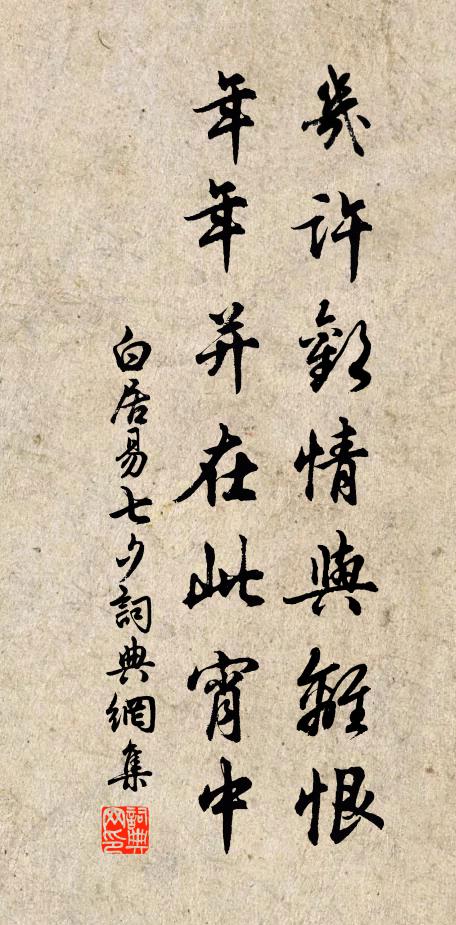 幾許歡情與離恨
年年并在此宵中
白居易七夕詞典網集
詞典网印